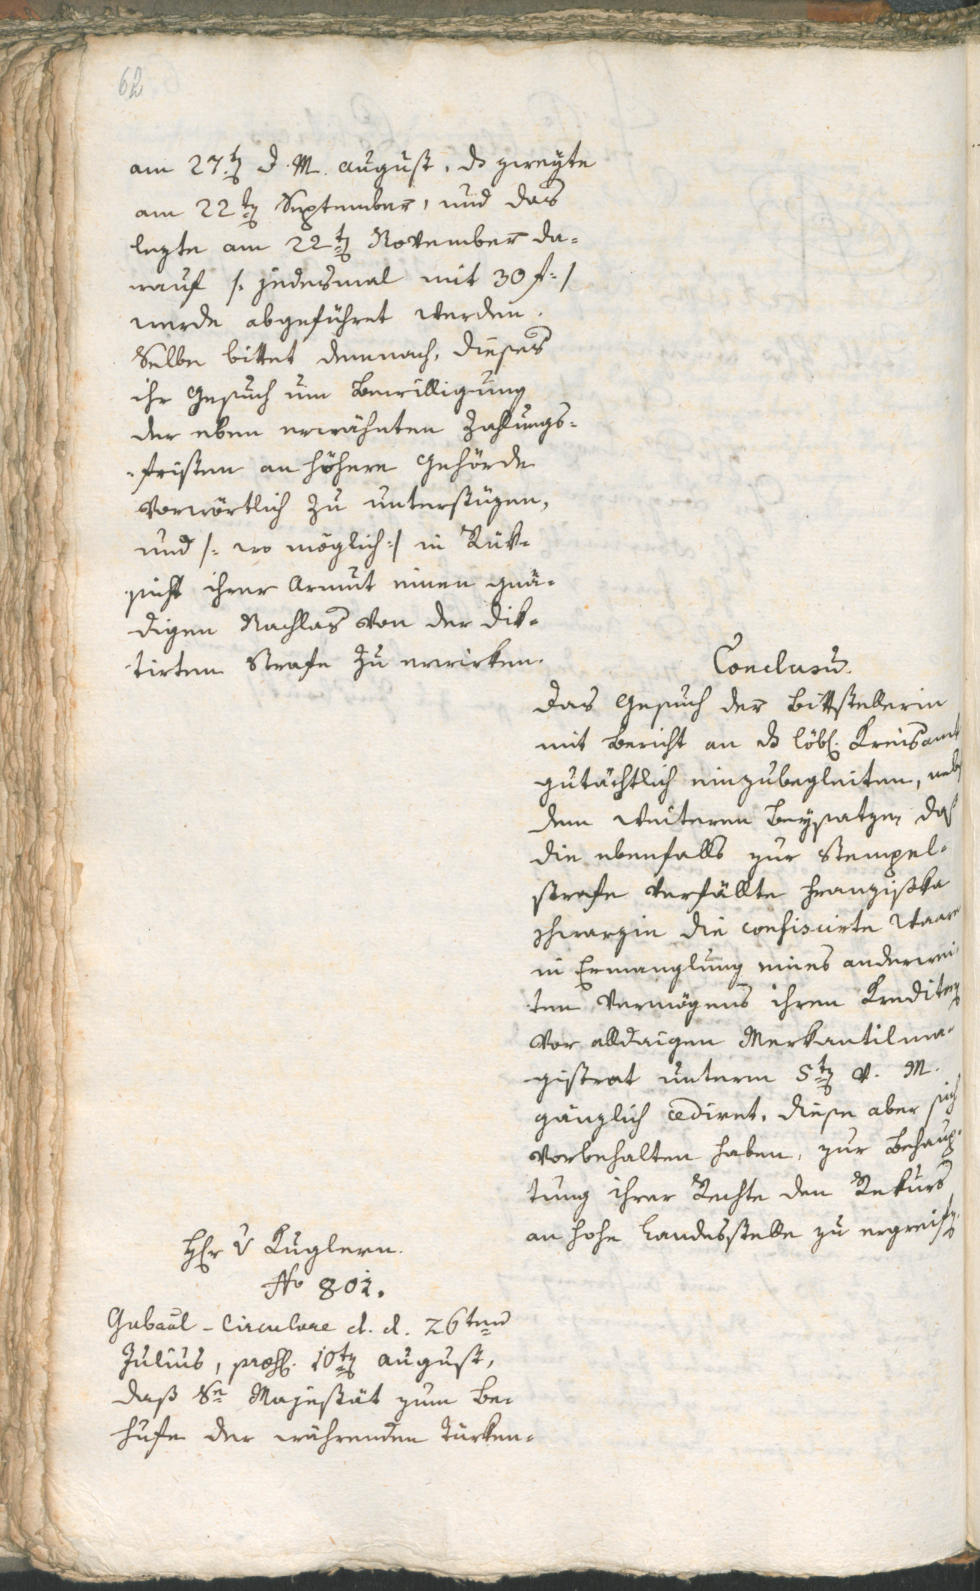 62
am 27.ten d. M. August, d zweyte
am 22ten September, und das
lezte am 22ten November da-
rauf /: jedesmal mit 30 f :/
werde abgeführet werden.
Selbe bittet demnach, dieses
ihr Gesuch um Bewilligung
der eben erwähnten Zahlungs-
-fristen an höhere Gehörde
vorwörtlich zu unterstüzen,
und /: wo möglich :/ in Rük-
sicht ihrer Armut einen gnä-
digen Nachlas von der dik-
tirten Strafe zu erwirken.
Conclusum.
Das Gesuch der Bittstellerin
mit Bericht an d löbl. Kreisamt
gutächtlich einzubegleiten, nebst
dem weiteren Beysatze, daß
die ebenfalls zur Stempel-
strafe verfällte Franziska
Schwarzin die confiscirte Waare
in Ermanglung eines anderwei-
ten Vermögens ihren Kreditoren
vor alldaigen Merkantilma-
gistrat unterm 5ten v. M.
gänzlich cediret, diese aber sich
vorbehalten haben, zur Behaup-
tung ihrer Rechte den Rekurs
an hohe Landesstelle zu ergreifen.
Hr v Kuglern.
No 801.
Gubaal-Circulare d. d. 26ten
Julius, præs. 10ten August,
daß Se Majestät zum Be-
hufe der währenden Türken-